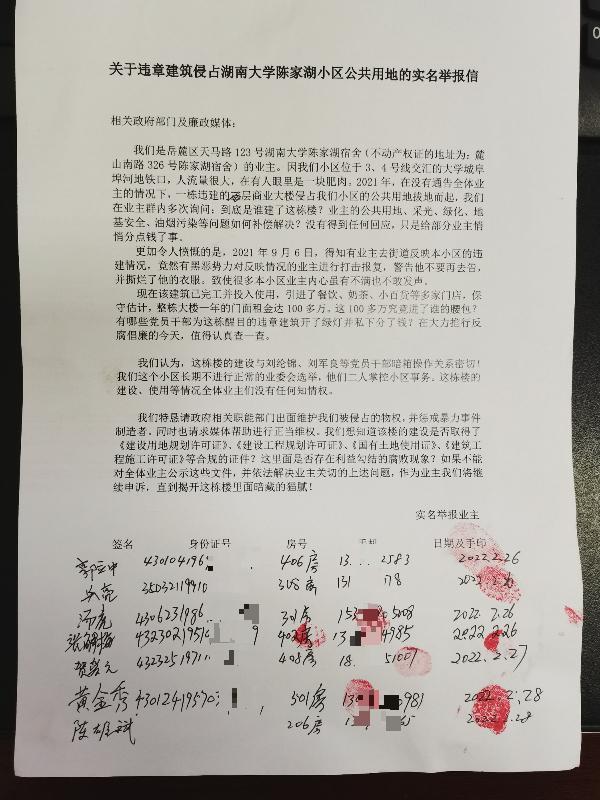 关于违章建筑侵占湖南大学陈家湖小区公共用地的实名举报信
相关政府部门及廉政媒体：
我们是岳麓区天马路123号湖南大学陈家湖宿舍（不动产权证的地址为：麓
山南路326号陈家湖宿舍）的业主。因我们小区位于3、4号线交汇的大学城阜
埠河地铁口，人流量很大，在有人眼里是一块肥肉。2021年，在没有通告全体业
主的情况下，一栋违建的层商业大楼侵占我们小区的公共用地拔地而起，我们
在业主群内多次询问：到底是谁建了这栋楼？业主的公共用地、采光、绿化、地
基安全、油烟污染等问题如何补偿解决？没有得到任何回应，只是给部分业主悄
悄分点钱了事。
更加令人愤慨的是，2021年9月6日，得知有业主去街道反映本小区的违
建情况，竟然有黑恶势力对反映情况的业主进行打击报复，警告他不要再去告，
并撕烂了他的衣服。致使很多本小区业主内心虽有不满也不敢发声。
现在该建筑已完工并投入使用，引进了餐饮、奶茶、小百货等多家门店，保
守估计，整栋大楼一年的门面租金达100多万，这100多万究竟进了谁的腰包？
有哪些党员干部为这栋醒目的违章建筑开了绿灯并私下分了钱？在大力推行反
腐倡廉的今天，值得认真查一查。
我们认为，这栋楼的建设与刘纶锦、刘军良等党员干部暗箱操作关系密切！
我们这个小区长期不进行正常的业委会选举，他们二人掌控小区事务。这栋楼的
建设、使用等情况全体业主们没有任何知情权。
我们特恳请政府相关职能部门出面维护我们被侵占的物权，并惩戒暴力事件
制造者，同时也请求媒体帮助进行正当维权。我们想知道该楼的建设是否取得了
《建设用地规划许可证》、《建设工程规划许可证》、《国有土地使用证》、《建筑工
程施工许可证》等合规的证件？这里面是否存在利益勾结的腐败现象？如果不能
对全体业主公示这些文件，并依法解决业主关切的上述问题，作为业主我们将继
续申诉，直到揭开这栋楼里面暗藏的猫腻！
实名举报业主
签名 身份证号 房号 手机 日期及手印
430104196 406房 13 2583 2022.2.26
35032119910 308房 131 178 2022.2.26
汤亮 4306231986 301房 153 5008 2022.2.26
432302195 9 402房 13 4985 2022.2.26
4323251971 408房 18 51007 2022.2.27
黄金秀 43012419570 501房 13 0981 2022.2.28
陈雄斌 206房 65 2022.2.28